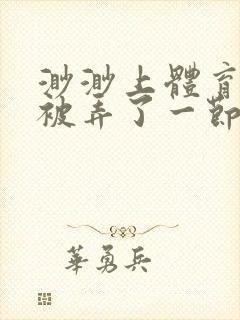 渺渺上體育
被弄了一節
華勇兵